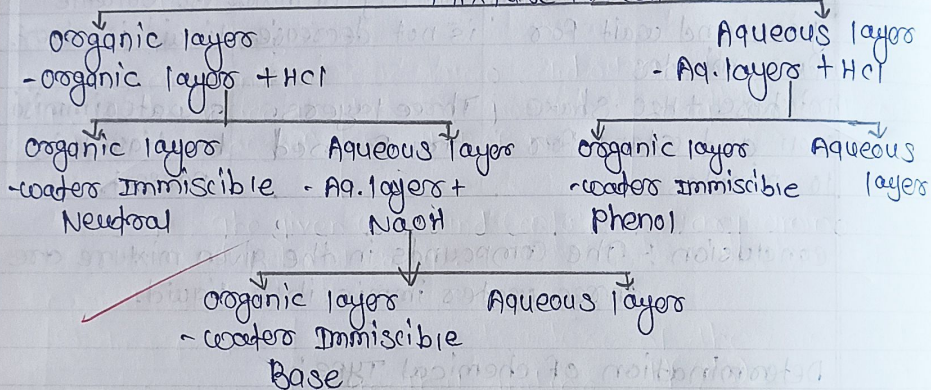 Organic layer
- Organic layer + HCl
Aqueous layer
- Aq. layer + HCl
Organic layer
- water Immiscible
Neutral
Aqueous layer
- Aq. layer +
NaOH
Organic layer
- water Immiscible
Phenol
Aqueous
layer
Organic layer
- water Immiscible
Base
Aqueous layer